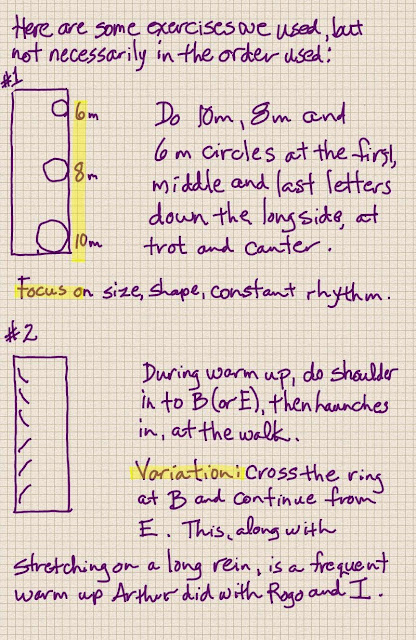 Here are some exercises we used, but
not necessarily in the order used:
#1
6m
8m
10m
Do 10m, 8m and
6m circles at the first,
middle and last letters
down the long side, at
trot and canter.
Focus on size, shape, constant rhythm.
#2
During warm up, do shoulder
in to B (or E), then haunches
in, at the walk.
Variation: Cross the ring
at B and continue from
E. This, along with
stretching on a long rein, is a frequent
warm up Arthur did with Rogo and I.